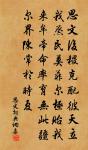 思文後稷克配彼天立
我烝民莫菲爾極貽我
來牟帝命率育無此疆
爾界陳常於時夏